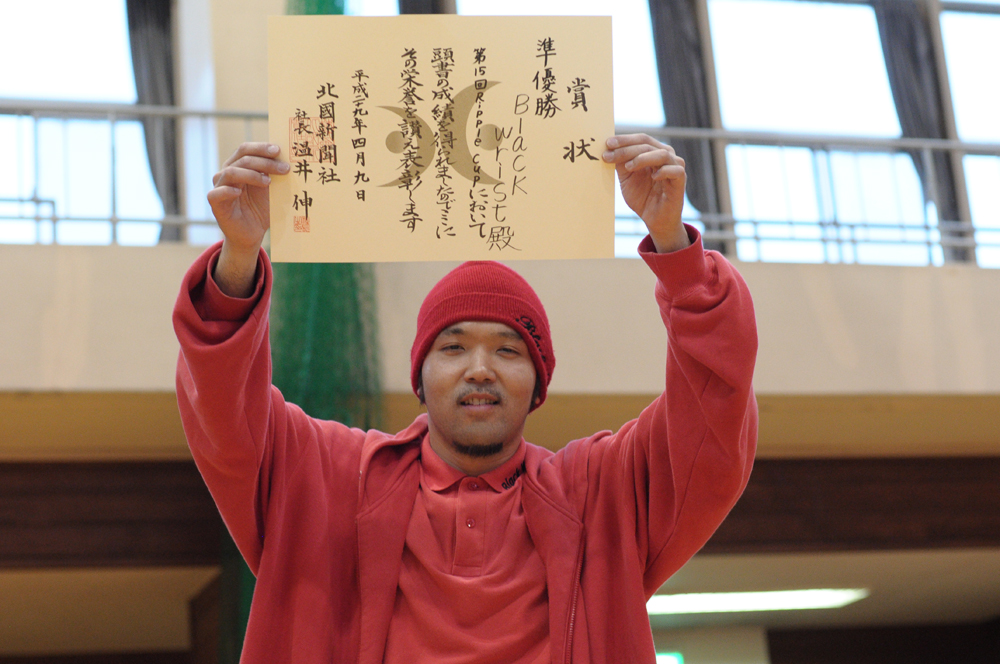 賞状
準優勝
Black
wrist殿
第15回Ripple Cupにおいて
頭書の成績を得られましたのでここに
その栄誉を讃え表彰します
平成二九年四月九日
北國新聞社
社長 温井伸